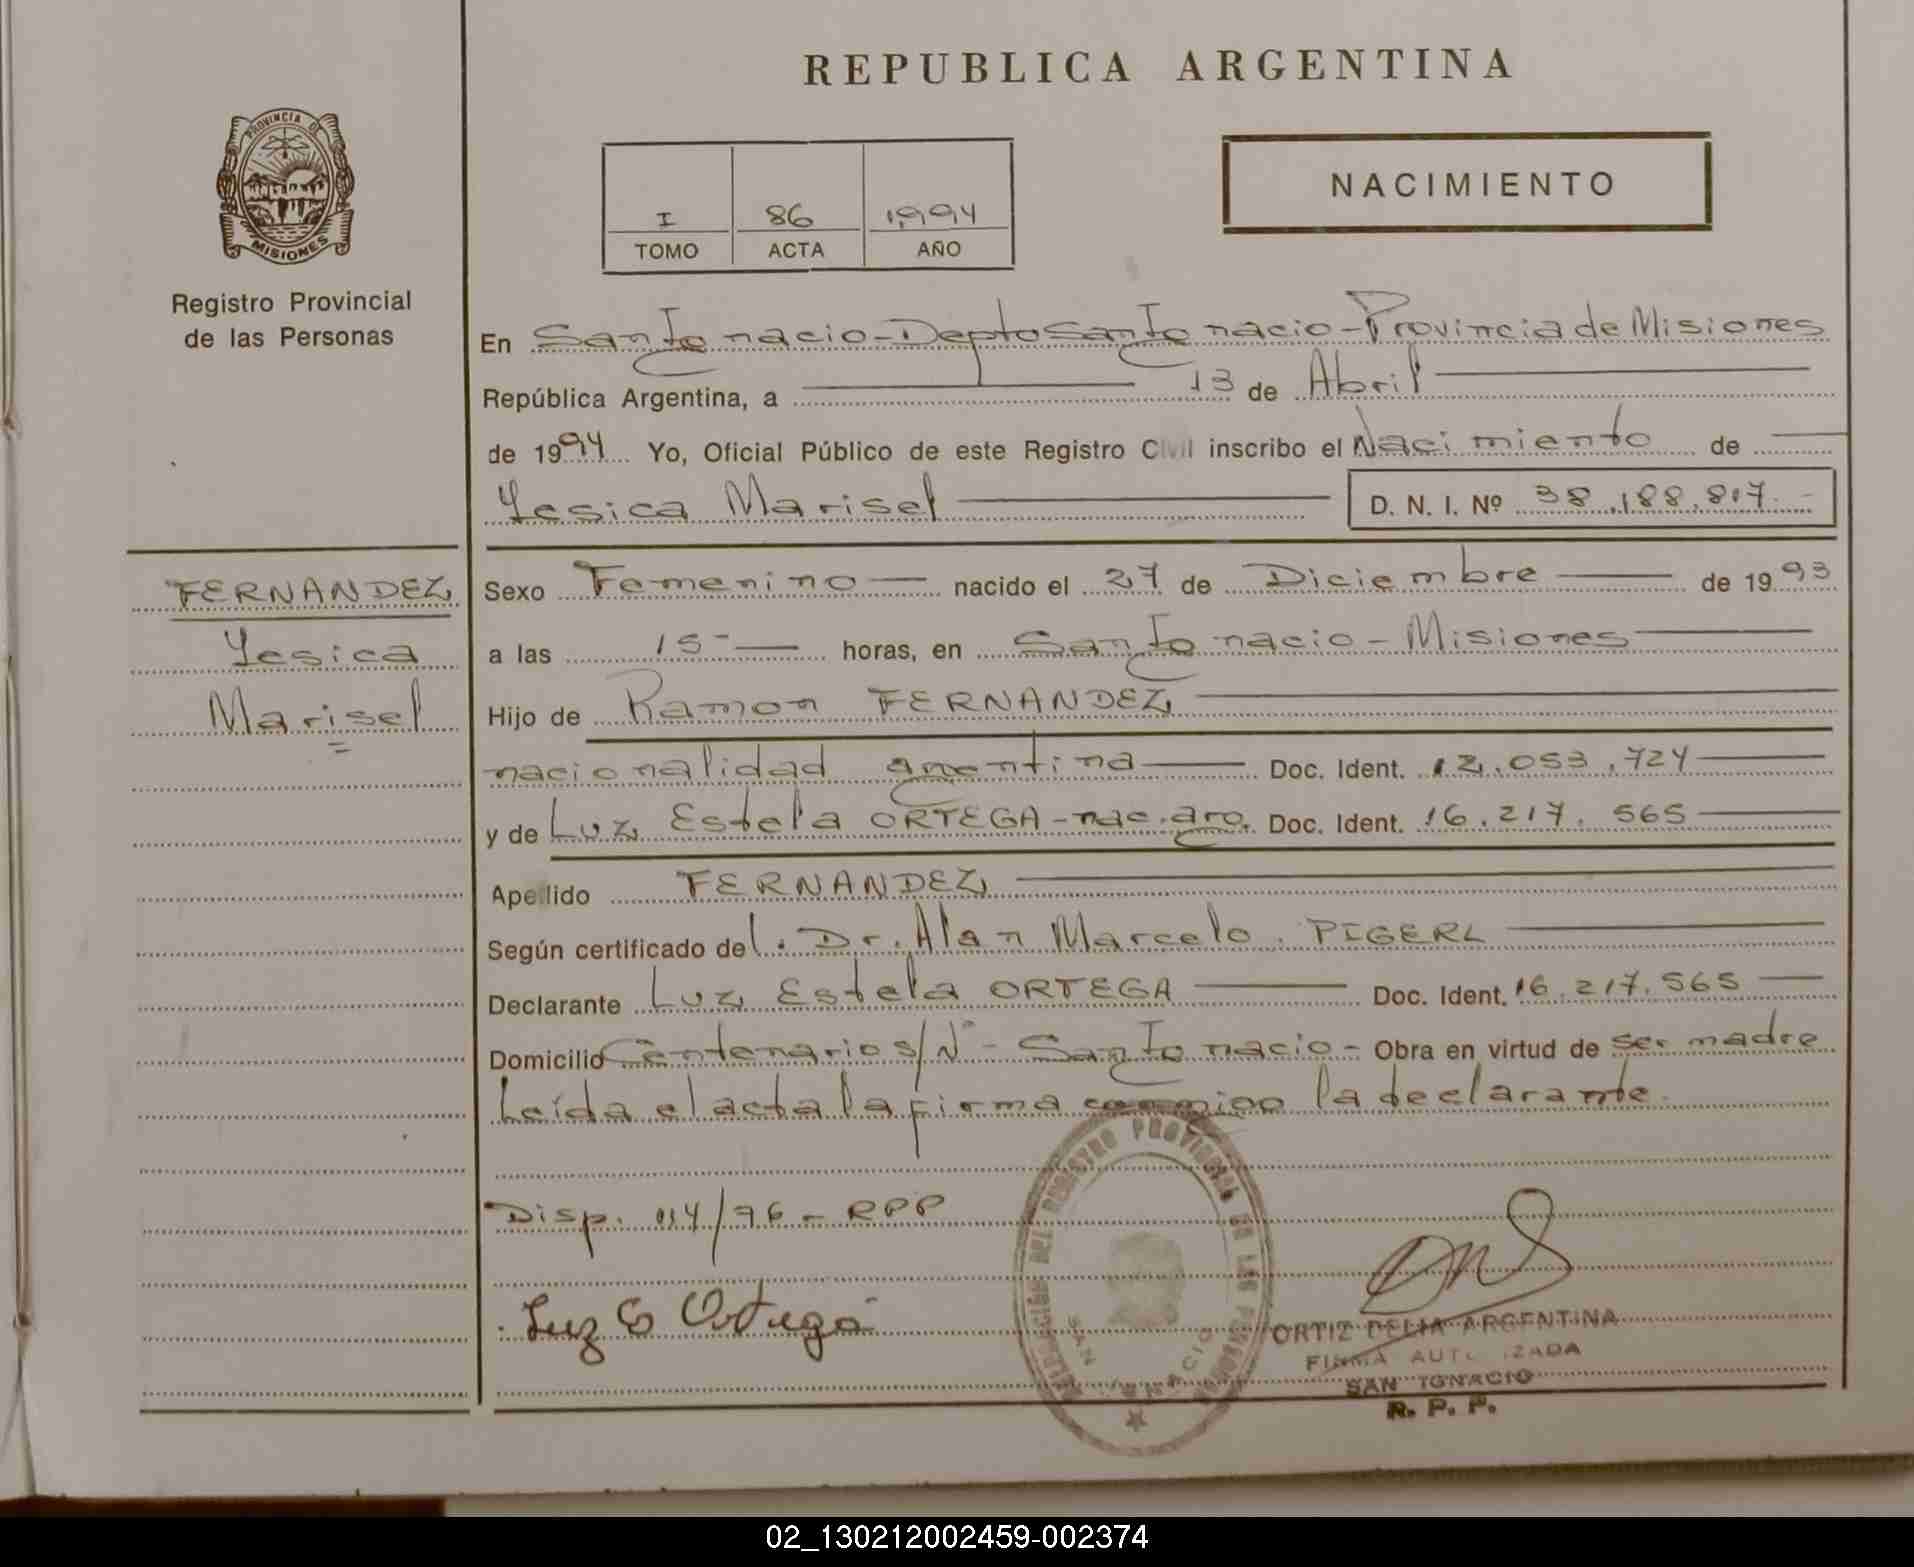 REPUBLICA ARGENTINA
PROVINCIA DE
MISIONES
Registro Provincial
de las Personas
I 86 1,994
TOMO ACTA AÑO
NACIMIENTO
En San Ignacio - Depto San Ignacio - Provincia de Misiones
República Argentina, a 13 de Abril
de 1994 Yo, Oficial Público de este Registro Civil inscribo el Nacimiento de
Yesica Marisel D. N. I. Nº 38,188,817.-
FERNANDEZ
Yesica
Marisel
Sexo Femenino nacido el 27 de Diciembre de 1993
a las 15- horas, en San Ignacio - Misiones
Hijo de Ramon FERNANDEZ
nacionalidad argentina Doc. Ident. 12.053.724
y de Luz Estela ORTEGA - nac. arg. Doc. Ident. 16.217.565
Apellido FERNANDEZ
Según certificado del. Dr. Alan Marcelo PIGERL
Declarante Luz Estela ORTEGA Doc. Ident. 16.217.565
Domicilio Centenario s/Nº - San Ignacio - Obra en virtud de ser madre
Leída el acta la firma conmigo la declarante.
Disp. 114/76 - RPP
Luz E Ortega
DEL REGISTRO PROVINCIAL DE LAS PERSONAS
SAN IGNACIO
ORTIZ DELIA ARGENTINA
FIRMA AUTORIZADA
SAN IGNACIO
R. P. P.
02_130212002459-002374